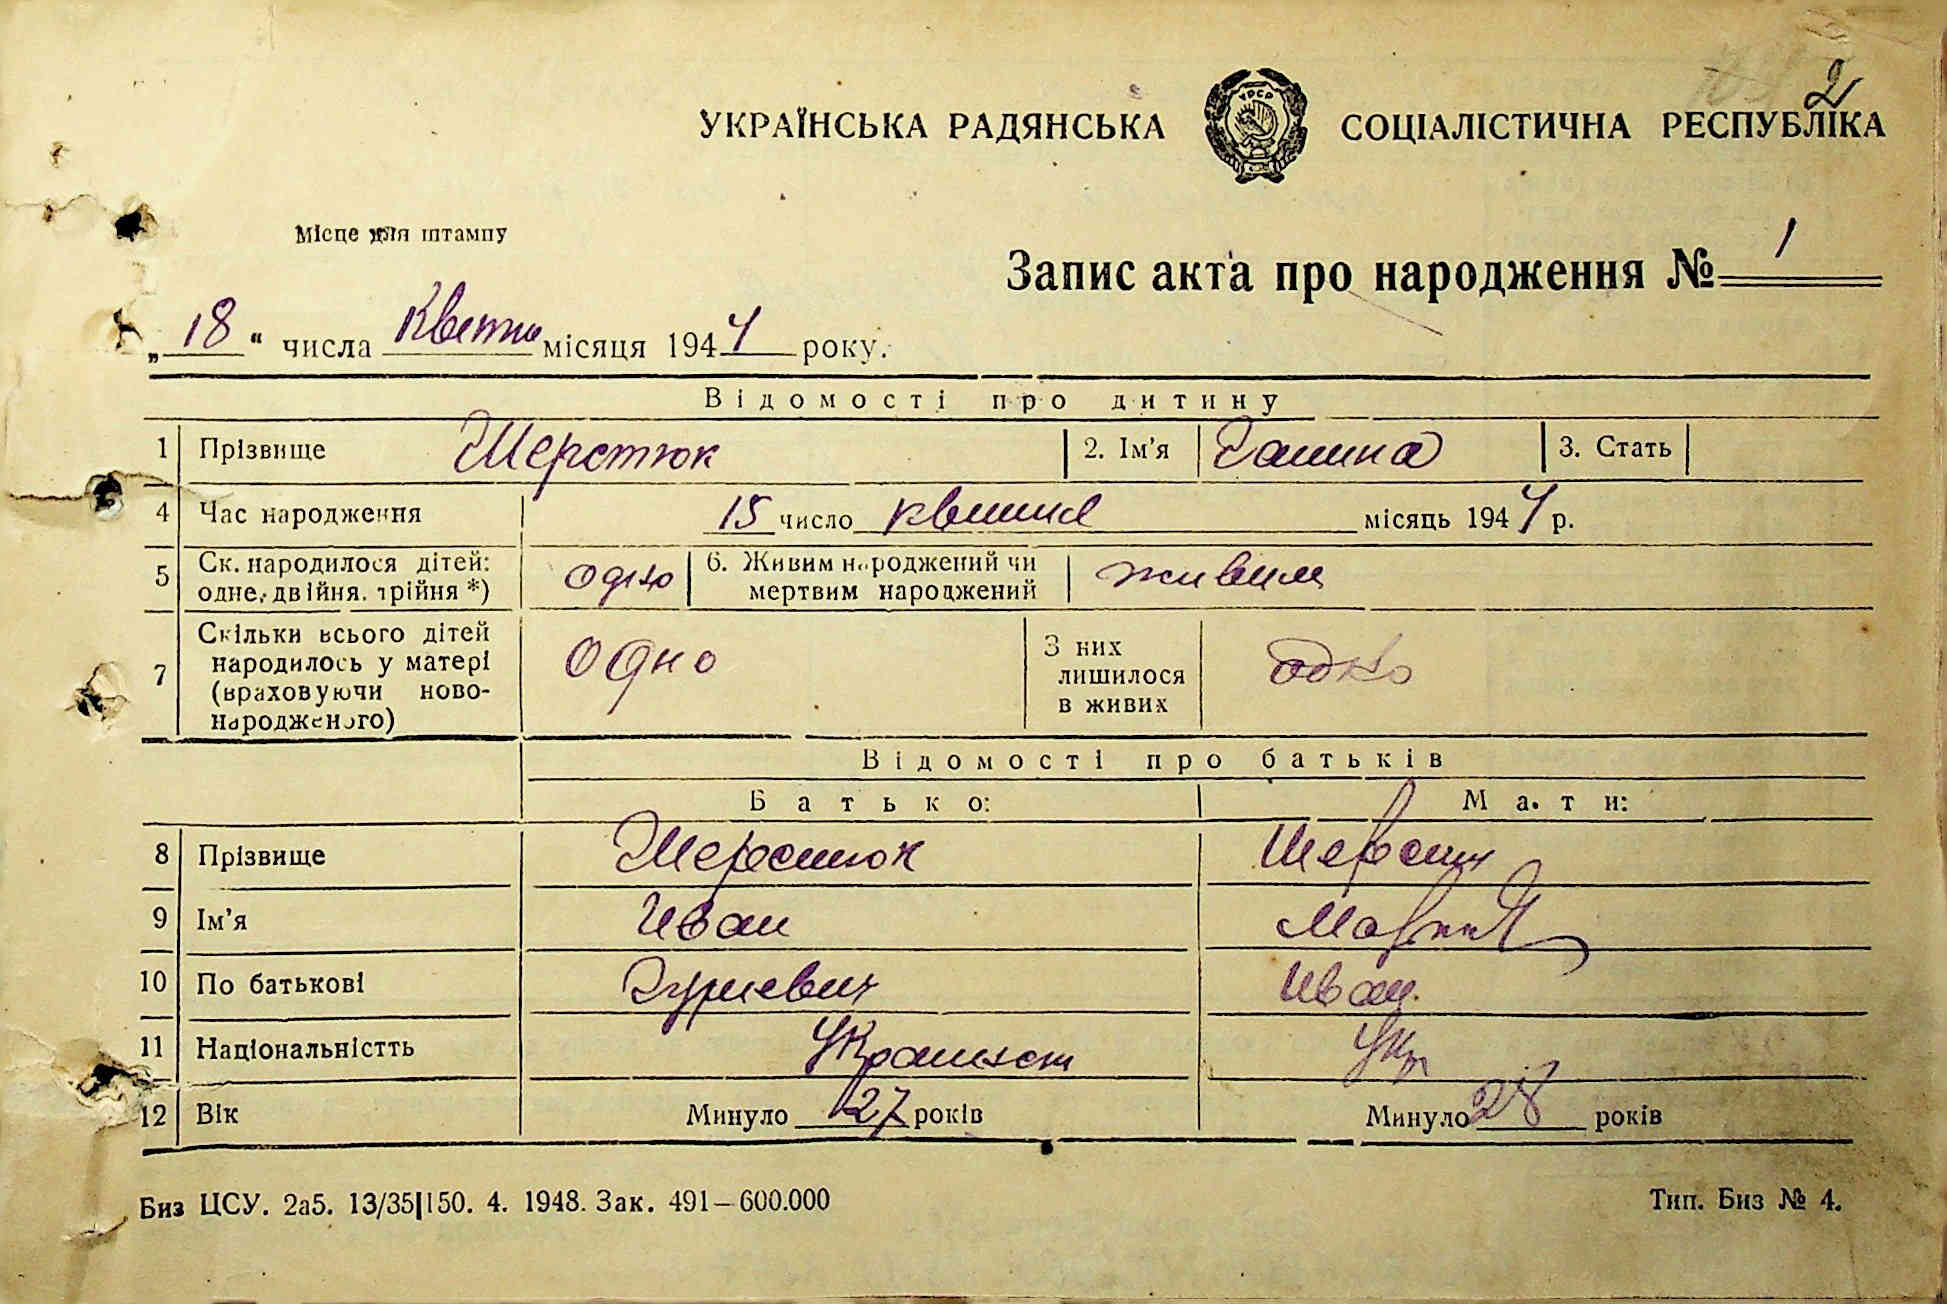 2
УКРАЇНСЬКА РАДЯНСЬКА УРСР СОЦІАЛІСТИЧНА РЕСПУБЛІКА
Місце для штампу
Запис акта про народження № 1
„18“ числа Квітня місяця 1944 року.
Відомості про дитину
1 Прізвище Шерстюк 2. Ім'я Галина 3. Стать
4 Час народження 15 число квітня місяць 1944 р.
5 Ск. народилося дітей: одне, двійня, трійня *) одно 6. Живим народжений чи мертвим народжений живим
7 Скільки всього дітей народилось у матері (враховуючи новонародженого) Одно З них лишилося в живих одно
Відомості про батьків
Батько: Мати:
8 Прізвище Шерстюк
9 Ім'я Иван Мария
10 По батькові Иван.
11 Національністть Укр
12 Вік Минуло 27 років Минуло 28 років
Биз ЦСУ. 2а5. 13/35|150. 4. 1948. Зак. 491–600.000 Тип. Биз № 4.